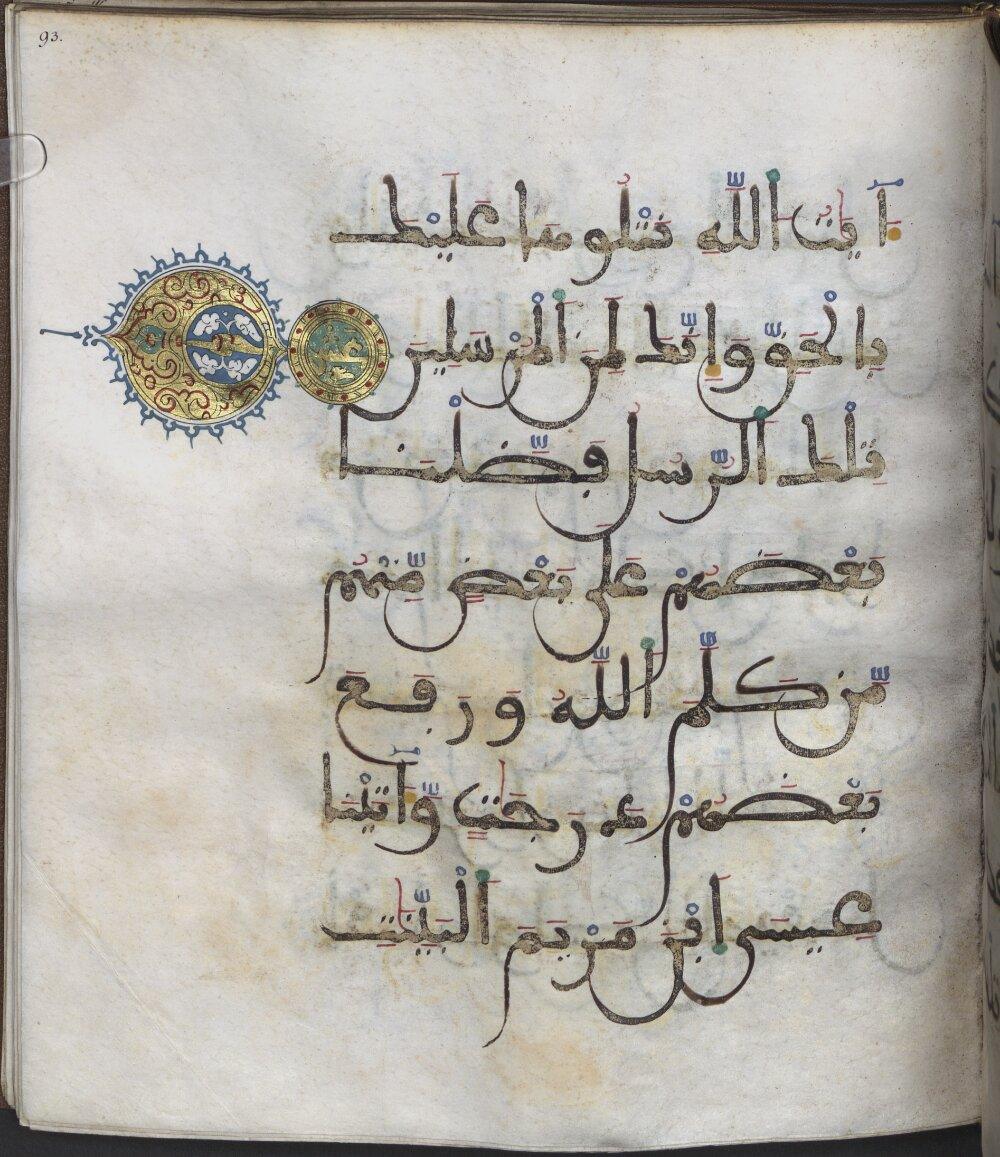 93.
ءَايَٰتُ ٱللَّهِ نَتْلُوهَا عَلَيْكَ
بِالْحَقِّ وَإِنَّكَ لَمِنَ ٱلْمُرْسَلِينَ
تِلْكَ ٱلرُّسُلُ فَضَّلْنَا
بَعْضَهُمْ عَلَىٰ بَعْضٍ مِّنْهُم
مَّن كَلَّمَ ٱللَّهُ وَرَفَعَ
بَعْضَهُمْ دَرَجَٰتٍ وَّءَاتَيْنَا
عِيسَى ٱبْنَ مَرْيَمَ ٱلْبَيِّنَٰتِ